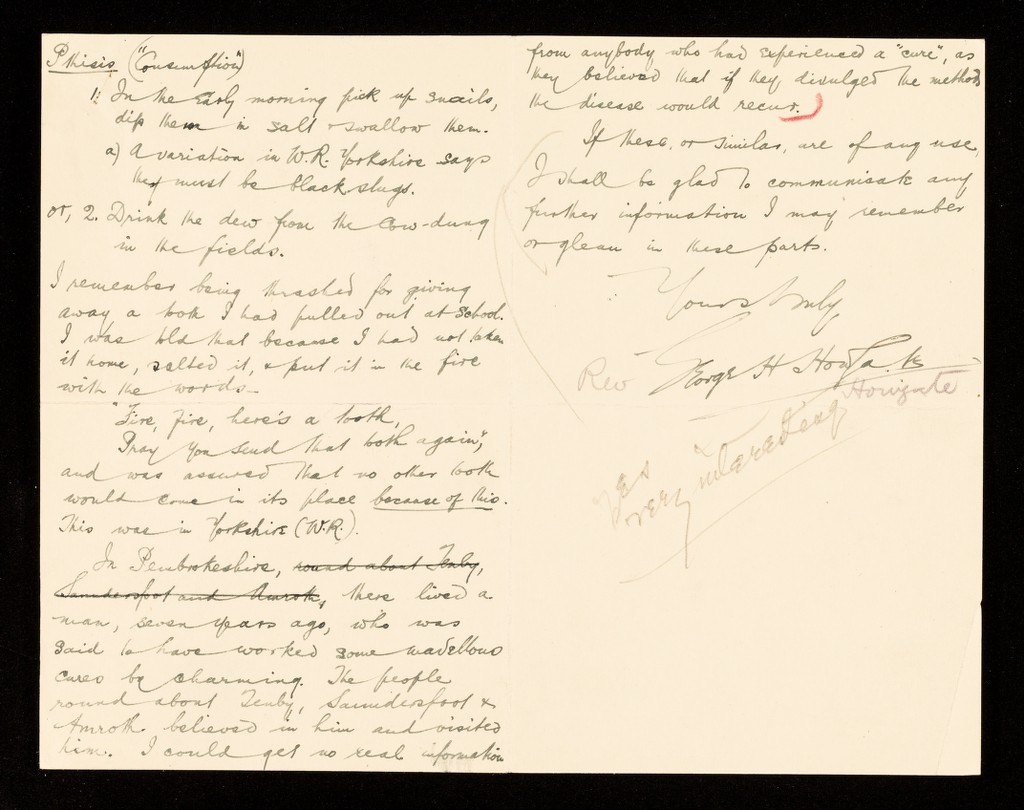 Pthisis ("Consumption")
1: In the early morning pick up snails,
dip them in salt & swallow them.
a) A variation in W.R. Yorkshire says
they must be black slugs.
or, 2. Drink the dew from the cow-dung
in the fields.
I remember being thrashed for giving
away a tooth I had pulled out at school.
I was told that because I had not taken
it home, salted it, & put it in the fire
with the words -
"Fire, fire, here's a tooth,
Pray you send that tooth again",
and was assured that no other tooth
would come in its place because of this.
This was in Yorkshire (W.R.).
In Pembrokeshire, round about Tenby,
Saundersfoot and Amroth, there lived a
man, seven years ago, who was
said to have worked some marvellous
cures by charming. The people
round about Tenby, Saundersfoot &
Amroth believed in him and visited
him. I could get no real information
from anybody who had experienced a "cure", as
they believed that if they divulged the methods
the disease would recur.
If these, or similar, are of any use,
I shall be glad to communicate any
further information I may remember
or glean in these parts.
Yours truly,
Rev George H Howgate
Howgate
Yes
very interesting